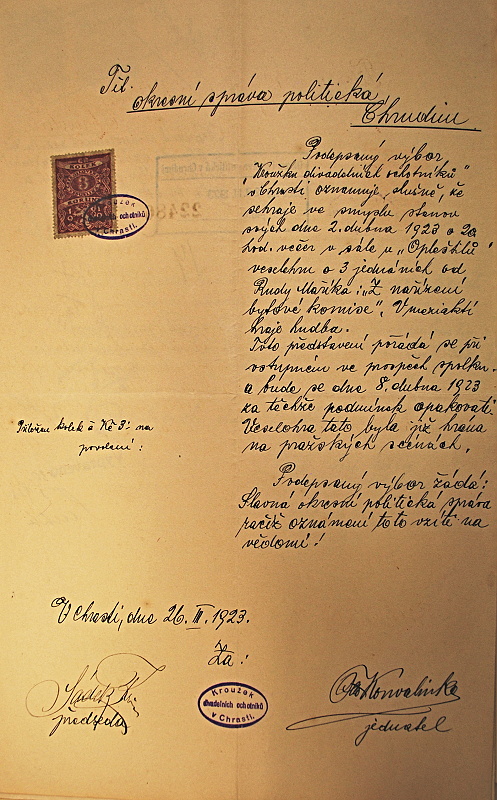 Tit.
okresní správa politická
Chrudim.
KOLEK
3
Kroužek
divadelních ochotníků
v Chrasti.
Podepsaný výbor
„Kroužku divadelních ochotníků"
v Chrasti oznamuje slušně, že
sehraje ve smyslu stanov
svých dne 2. dubna 1923 o 20
hod. večer v sále u „Opletštilů"
veselohru o 3 jednáních od
Rudy Mařika: „Z nařízení
bytové komise". V meziaktí
hraje hudba.
Toto představení pořádá se při
vstupném ve prospěch spolku.
a bude se dne 8. dubna 1923
za těchže podmínek opakovati.
Veselohra tato byla již hrána
na pražských scénách.
Přiložen kolek à Kč 3.- na
povolení:
Podepsaný výbor žádá:
Slavná okresní politická správa
račiž oznámení toto vzíti na
vědomí!
V Chrasti, dne 26. III. 1923.
Za:
Kroužek
divadelních ochotníků
v Chrasti.
předseda
jednatel